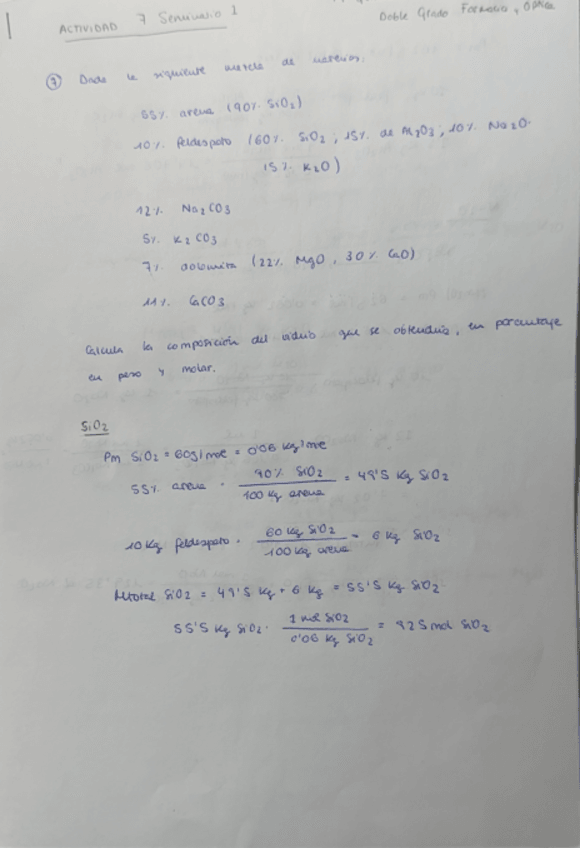 ACTIVIDAD 7 Seminario 1
Doble Grado Farmacia y Óptica
7 Dada la siguiente mezcla de materias:
55% arena (90% SiO2)
10% feldespato (60% SiO2; 15% de Al2O3; 10% Na2O
15% K2O)
12% Na2CO3
5% K2CO3
7% dolomita (22% MgO, 30% CaO)
11% CaCO3
Calcula la composición del vidrio que se obtendría, en porcentaje
en peso y molar.
SiO2
Pm SiO2 = 60g/mol = 0'06 Kg/mol
55% arena · 90% SiO2 / 100 Kg arena = 49'5 Kg SiO2
10 Kg feldespato · 60 Kg SiO2 / 100 Kg arena = 6 Kg SiO2
total SiO2 = 49'5 Kg + 6 Kg = 55'5 Kg SiO2
55'5 Kg SiO2 · 1 mol SiO2 / 0'06 Kg SiO2 = 925 mol SiO2